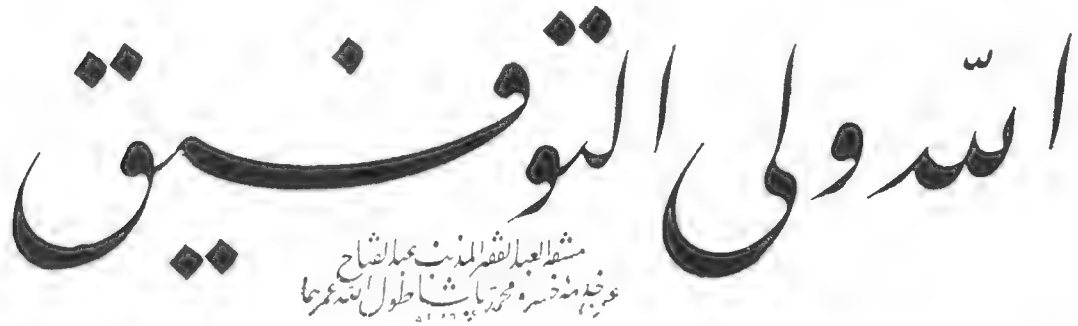 الله ولی التوفیق
مشقه العبد الفقیر المذنب عبد الفتاح
خسرو محمد پاشا طول الله عمرهما